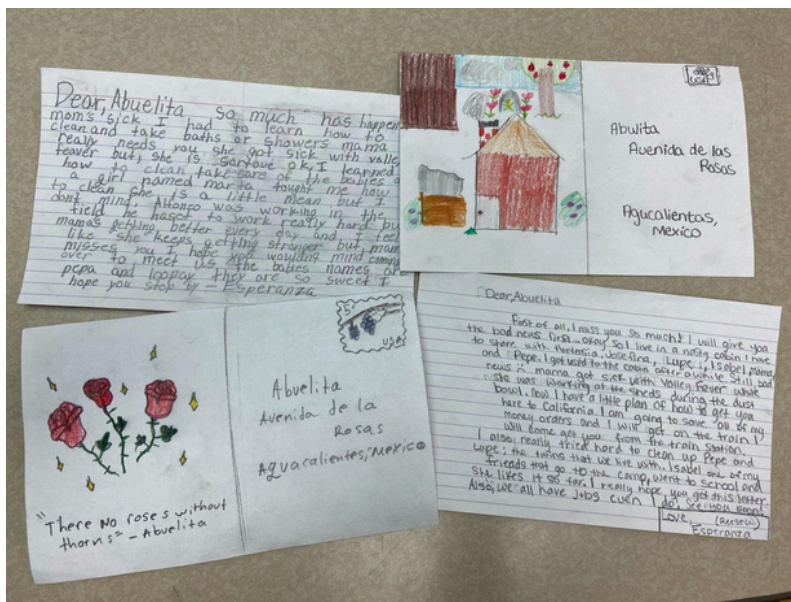 Dear, Abuelita so much has happen
mom's sick I had to learn how to
clean and take baths or showers mama
really needs you she got sick with valley
feaver but, she is ok, I learned
how to clean take care of the babies
a girl named marta tought me how
to clean she is a little mean but I
dont mind, Alfonzo was working in the
field he haset to work really hard bu
mamas getting better every day and I feel
like she keeps getting stronger but, mam
misses you I hope you wouldnt mind coming
over to meet us the babies names are
pepa and loopay they are so sweet I
hope you stop by - Esperanza
USA
Abulita
Avenida de las
Rosas
Agucalientas,
Mexico
"There No roses without
thorns" - Abuelita
USA
Abuelita
Avenida de la
Rosas
Aguacalientes, Mexico
Dear, Abuelita
First of all, I miss you so much! I will give you
the bad news first... okay so I live in a nasty cabin I have
to share with Hortensia, Josefina, Lupe, Isabel, mama,
and Pepe. I got used to the cabin after a while still, bad
news mama got sick with Valley Fever while
she was working at the sheds during the dust
bowl. Now I have a little plan of how to get you
here to California. I am going to save all of my
money orders and I will get on the train I
will come get you from the train station.
I also, really tried hard to clean up Pepe and
Lupe; the twins that we live with. Isabel one of my
friends that go to the camp, went to school and
she likes it so far. I really hope you get this letter.
Also, we all have jobs even I do! See you soon!
Love,
Esperanza